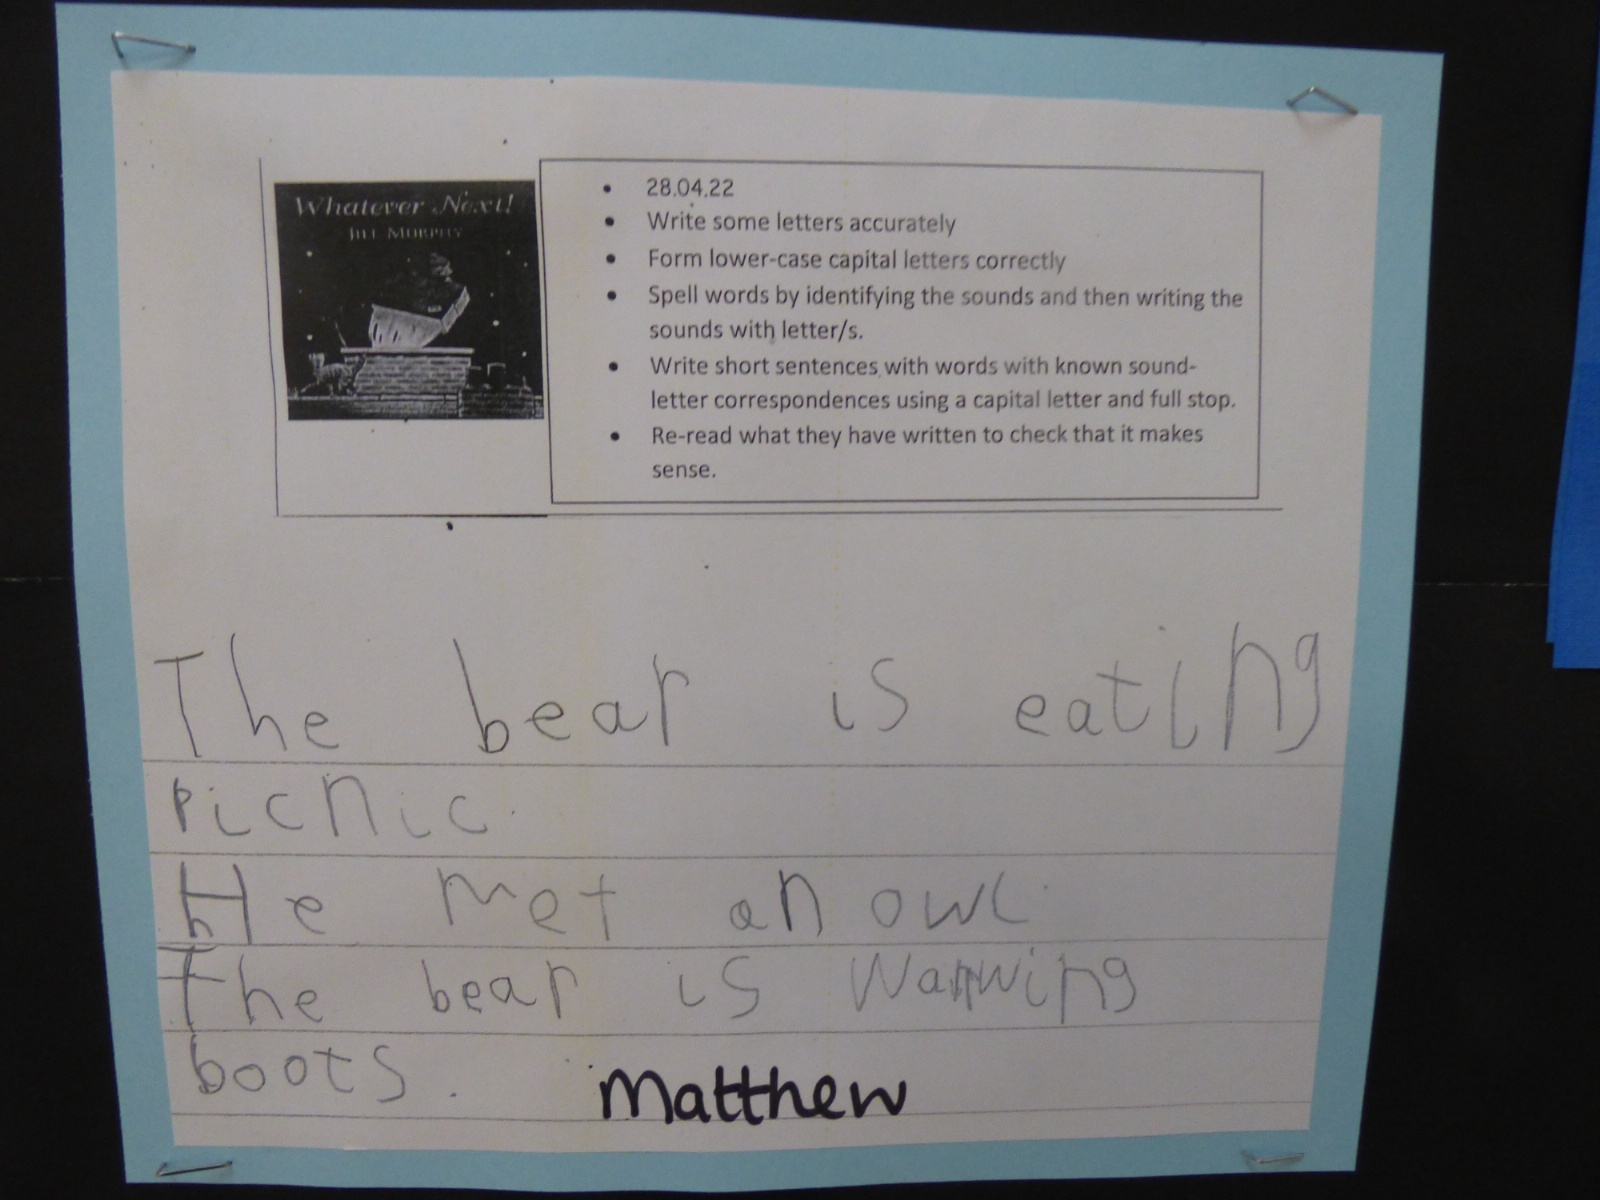 Whatever Next!
JILL MURPHY
• 28.04.22
• Write some letters accurately
• Form lower-case capital letters correctly
• Spell words by identifying the sounds and then writing the
sounds with letter/s.
• Write short sentences with words with known sound-
letter correspondences using a capital letter and full stop.
• Re-read what they have written to check that it makes
sense.
The bear is eating
picnic.
He met an owl.
The bear is
boots.
Matthew